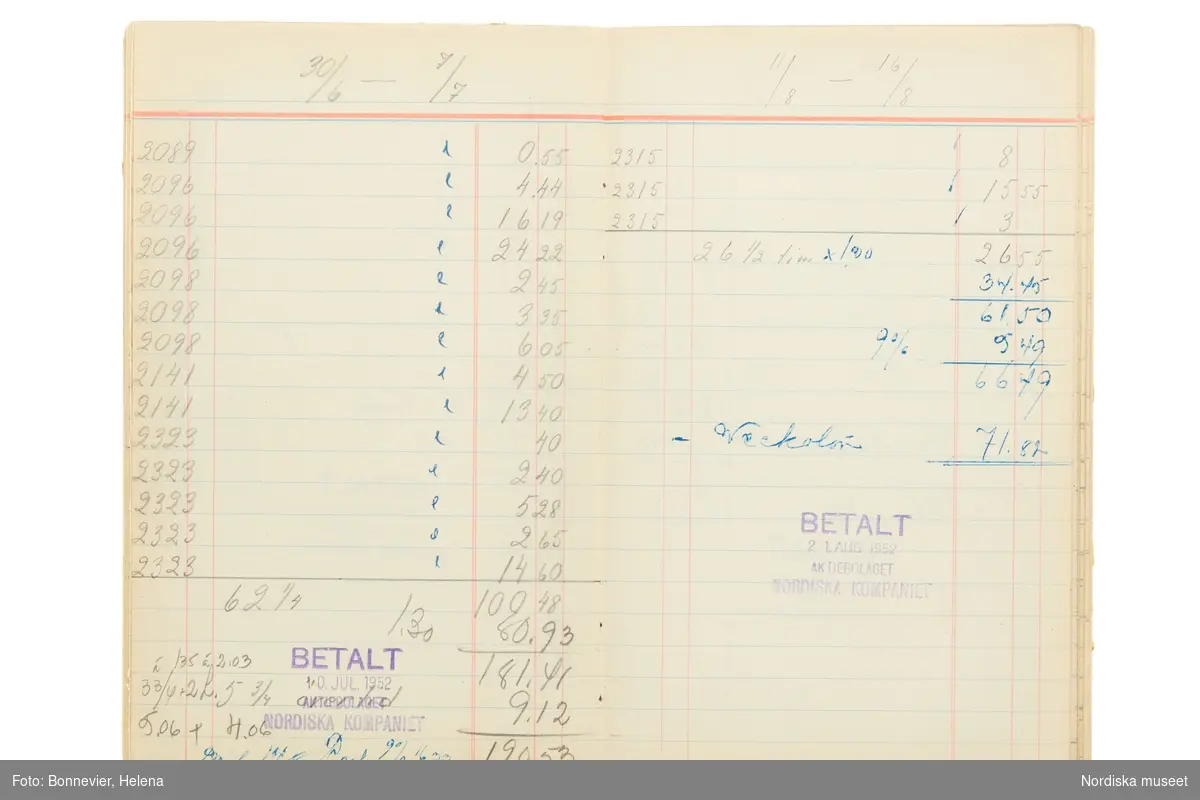 30/6 — 7/7
2089 0.55
2096 4.44
2096 16 19
2096 24 22
2098 2 45
2098 3 35
2098 6 05
2141 4 50
2141 13 40
2323 40
2323 2 40
2323 5 28
2323 2 65
2323 14 60
62 1/4 100 48
1.30 80.93
181.41
à 135 à 2.03
33/4+2 1. 5 3/4
9.12
5.06 + 4.06
190 53
BETALT
10. JUL. 1952
AKTIEBOLAGET
NORDISKA KOMPANIET
11/8 — 16/8
2315 8
2315 15 55
2315 3
26 1/2 tim x 1,30 26 55
34.45
61 50
9% 5 49
66 49
- Veckolön 71.82
BETALT
21. AUG 1952
AKTIEBOLAGET
NORDISKA KOMPANIET
Foto: Bonnevier, Helena
Nordiska museet